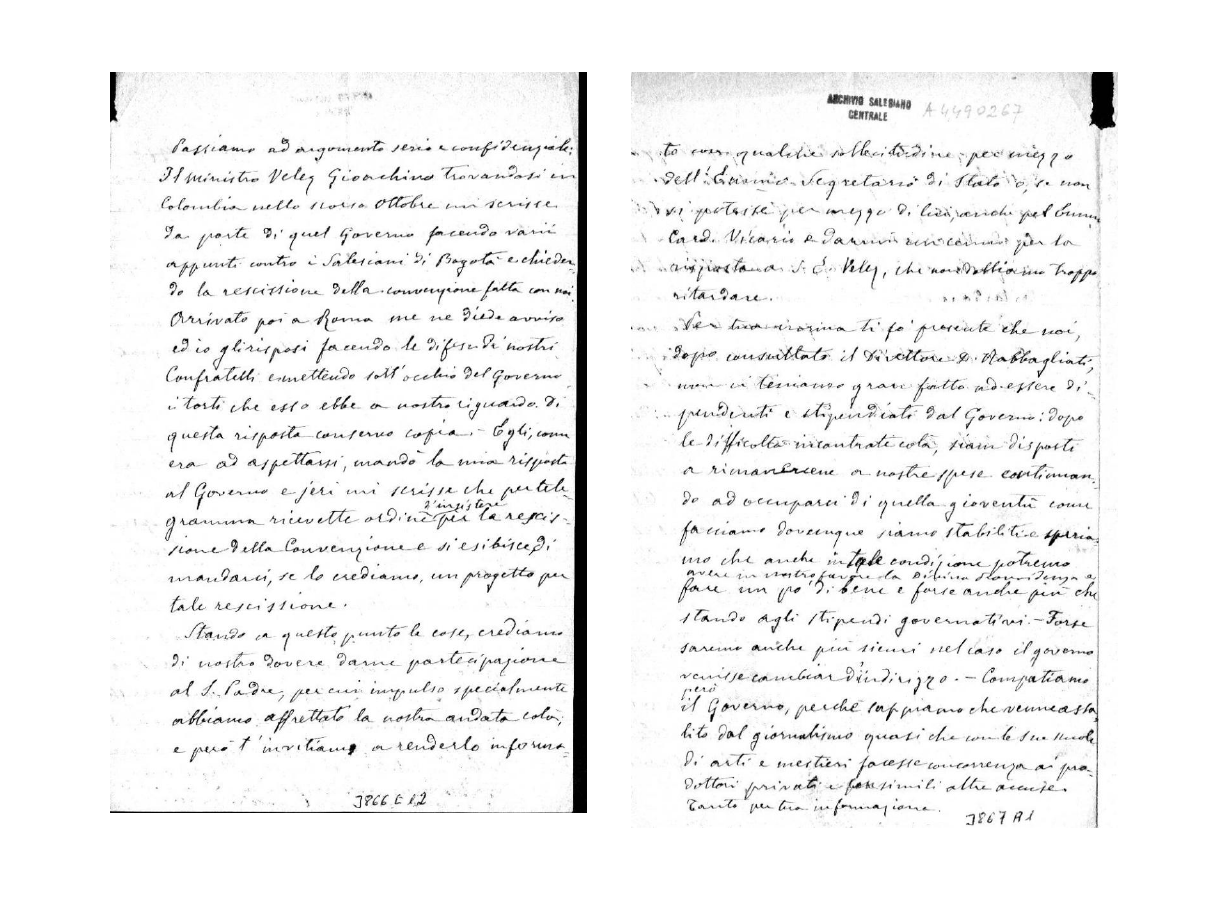 Passiamo ad argomento serio e confidenziale:
Il Ministro Velez Gioachino trovandosi in
Colombia nello scorso Ottobre mi scrisse
da parte di quel Governo facendo varii
appunti contro i Salesiani di Bogotà e chieden-
do la rescissione della convenzione fatta con noi.
Arrivato poi a Roma me ne diede avviso
ed io gli risposi facendo le difese di nostri
Confratelli e mettendo sott'occhio del Governo
i torti che esso ebbe a nostro riguardo. Di
questa risposta conservo copia. - Egli, com'
era ad aspettarsi, mandò la mia risposta
al Governo e jeri mi scrisse che per tele-
d'insistere
gramma ricevette ordine per la rescis-
sione della Convenzione e si esibisce di
mandarci, se lo crediamo, un progetto per
tale rescissione.
Stando a questo punto le cose, crediamo
di nostro dovere darne partecipazione
al S. Padre, per cui impulso specialmente
abbiamo affrettato la nostra andata colà,
e però t'invitiamo a renderlo informa-
3866 E 12
ARCHIVIO SALESIANO
CENTRALE
A4490267
to con qualche sollecitudine per mezzo
dell'Emin.o Segretario di Stato o, se non
si potesse per mezzo di lui, anche pel
Card. Vicario e darmi un cenno per la
risposta a S. E. Velez, che non dobbiamo troppo
ritardare.
Per tua norma ti fo' presente che noi,
dopo consultato il Direttore D. Rabbagliati,
non ci teniamo gran fatto ad essere di-
pendenti e stipendiati dal Governo: dopo
le difficoltà incontrate colà, siam disposti
a rimanercene a nostre spese continuan-
do ad occuparci di quella gioventù come
facciamo dovunque siamo stabiliti e speria-
mo che anche in tale condizione potremo
avere in nostro favore la Divina Provvidenza e
fare un po' di bene e forse anche più che
stando agli stipendi governativi. - Forse
saremo anche più sicuri nel caso il governo
venisse cambiar d'indirizzo. - Compatiamo
però
il Governo, perchè sappiamo che venne assa-
lito dal giornalismo quasi che con le sue scuole
di arti e mestieri facesse concorrenza ai pro-
duttori privati e per simili altre accuse.
Tanto per tua informazione.
3867 A1